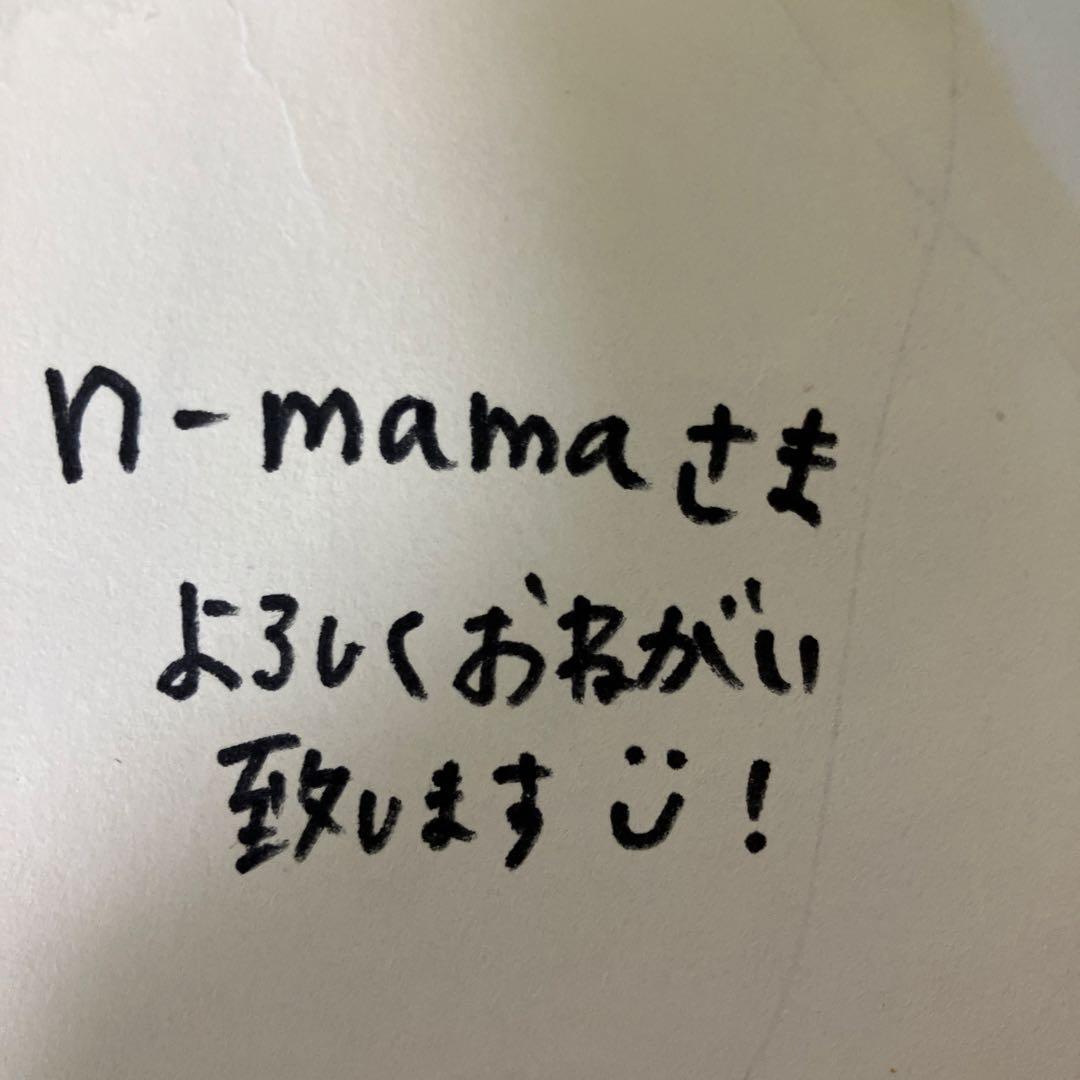 n-mamaさま
よろしくおねがい
致します !